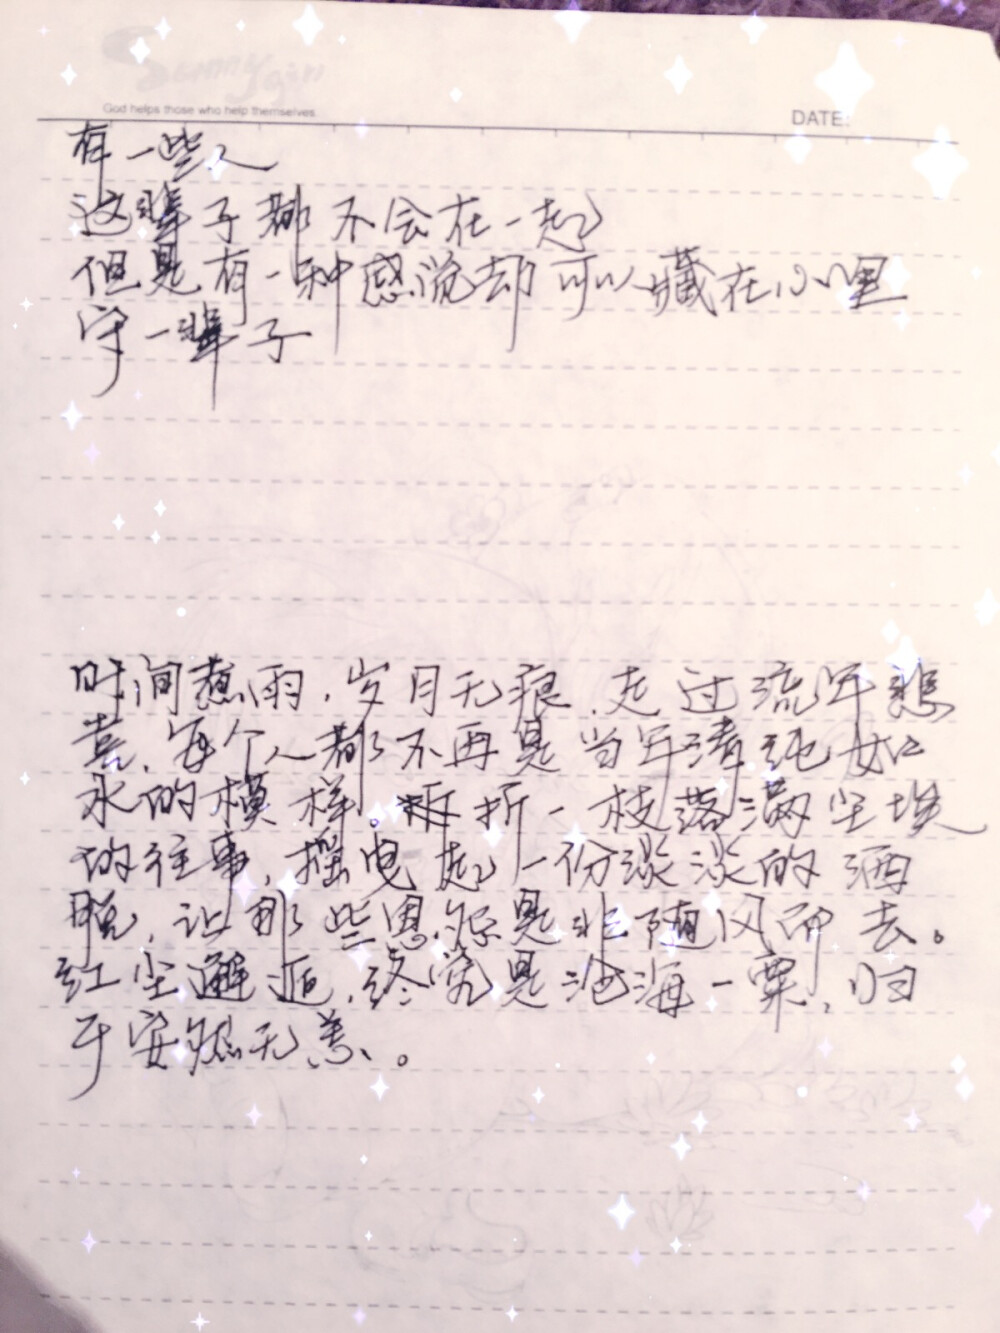 Sunny girl
God helps those who help themselves.
DATE:
有一些人
这辈子都不会在一起
但是有一种感觉却可以藏在心里
守一辈子
时间煮雨，岁月无痕，走过流年悲
喜，每个人都不再是当年清纯如
水的模样。折一枝落满尘埃
的往事，摇曳起一份淡淡的洒
脱，让那些恩怨是非随风而去。
红尘邂逅，终究是沧海一粟，归
于安然无恙。